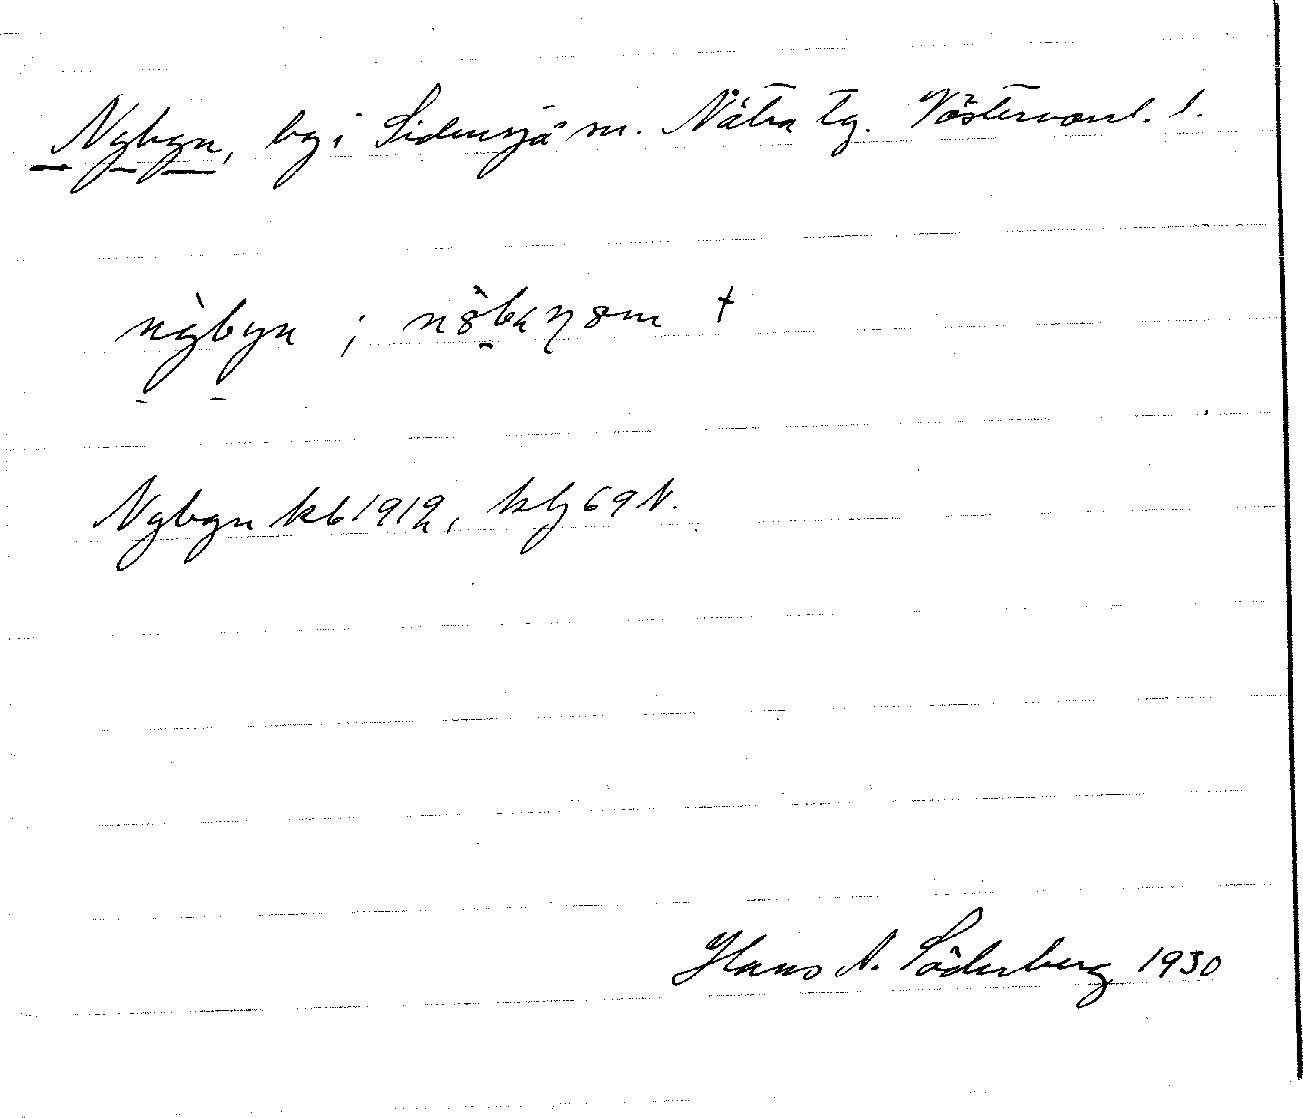 Nybyn, by i Sidensjö sn. Nätra tg. Västernorrl. l.
nỳbyn ;
Nybyn kb 1912, kbl 69 N.
Hans A. Söderberg 1930